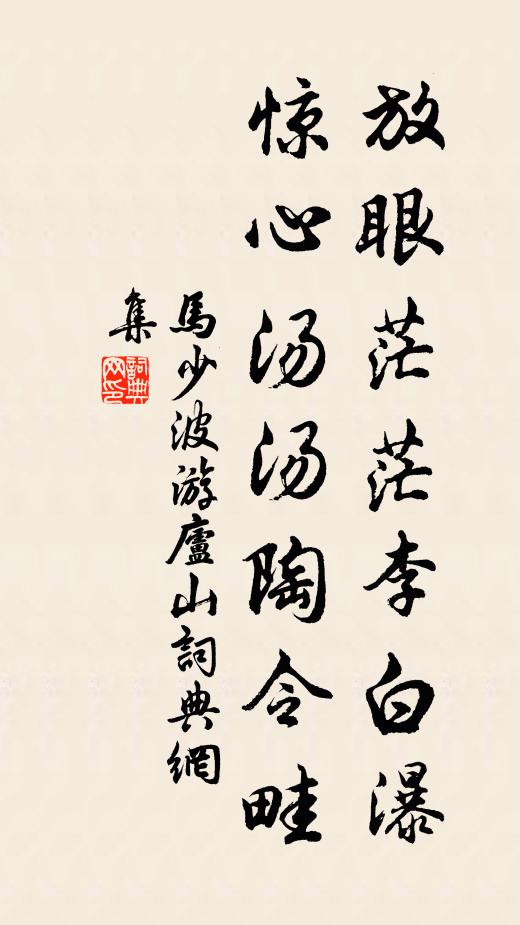 放眼茫茫李白瀑
惊心汤汤陶令畦
馬少波游廬山詞典網
集
詞典网印